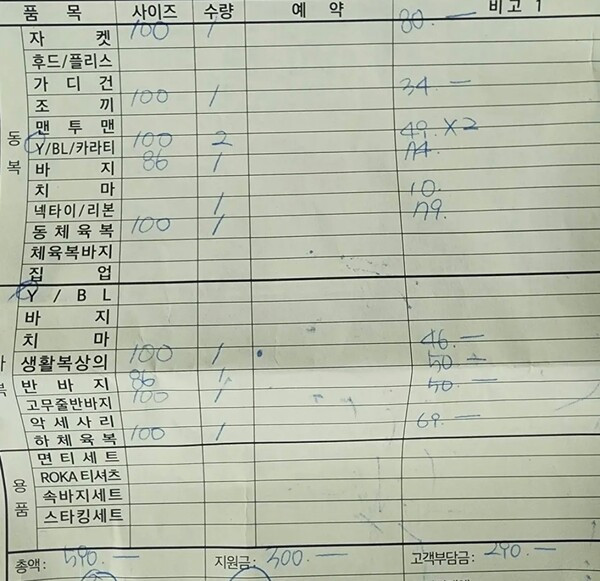 품 목 사이즈 수량 예 약 비고 1
자 켓 100 1 80. —
후드/플리스
가 디 건
조 끼 100 1 34. —
맨 투 맨
Y/BL/카라티 100 2 49. X2
바 지 86 1 74.
치 마
넥타이/리본 1 10.
동 체 육 복 100 1 79.
체육복바지
집 업
동 복
Y / B L
바 지
치 마
생활복상의 100 1 46. —
반 바 지 86 1 50 —
고무줄반바지 100 1 50. —
악 세 사 리
하 체 육 복 100 1 69. —
복
면 티 세 트
ROKA 티셔츠
속바지세트
스타킹세트
용 품
총액: 590. — 지원금: 300. — 고객부담금: 290. —